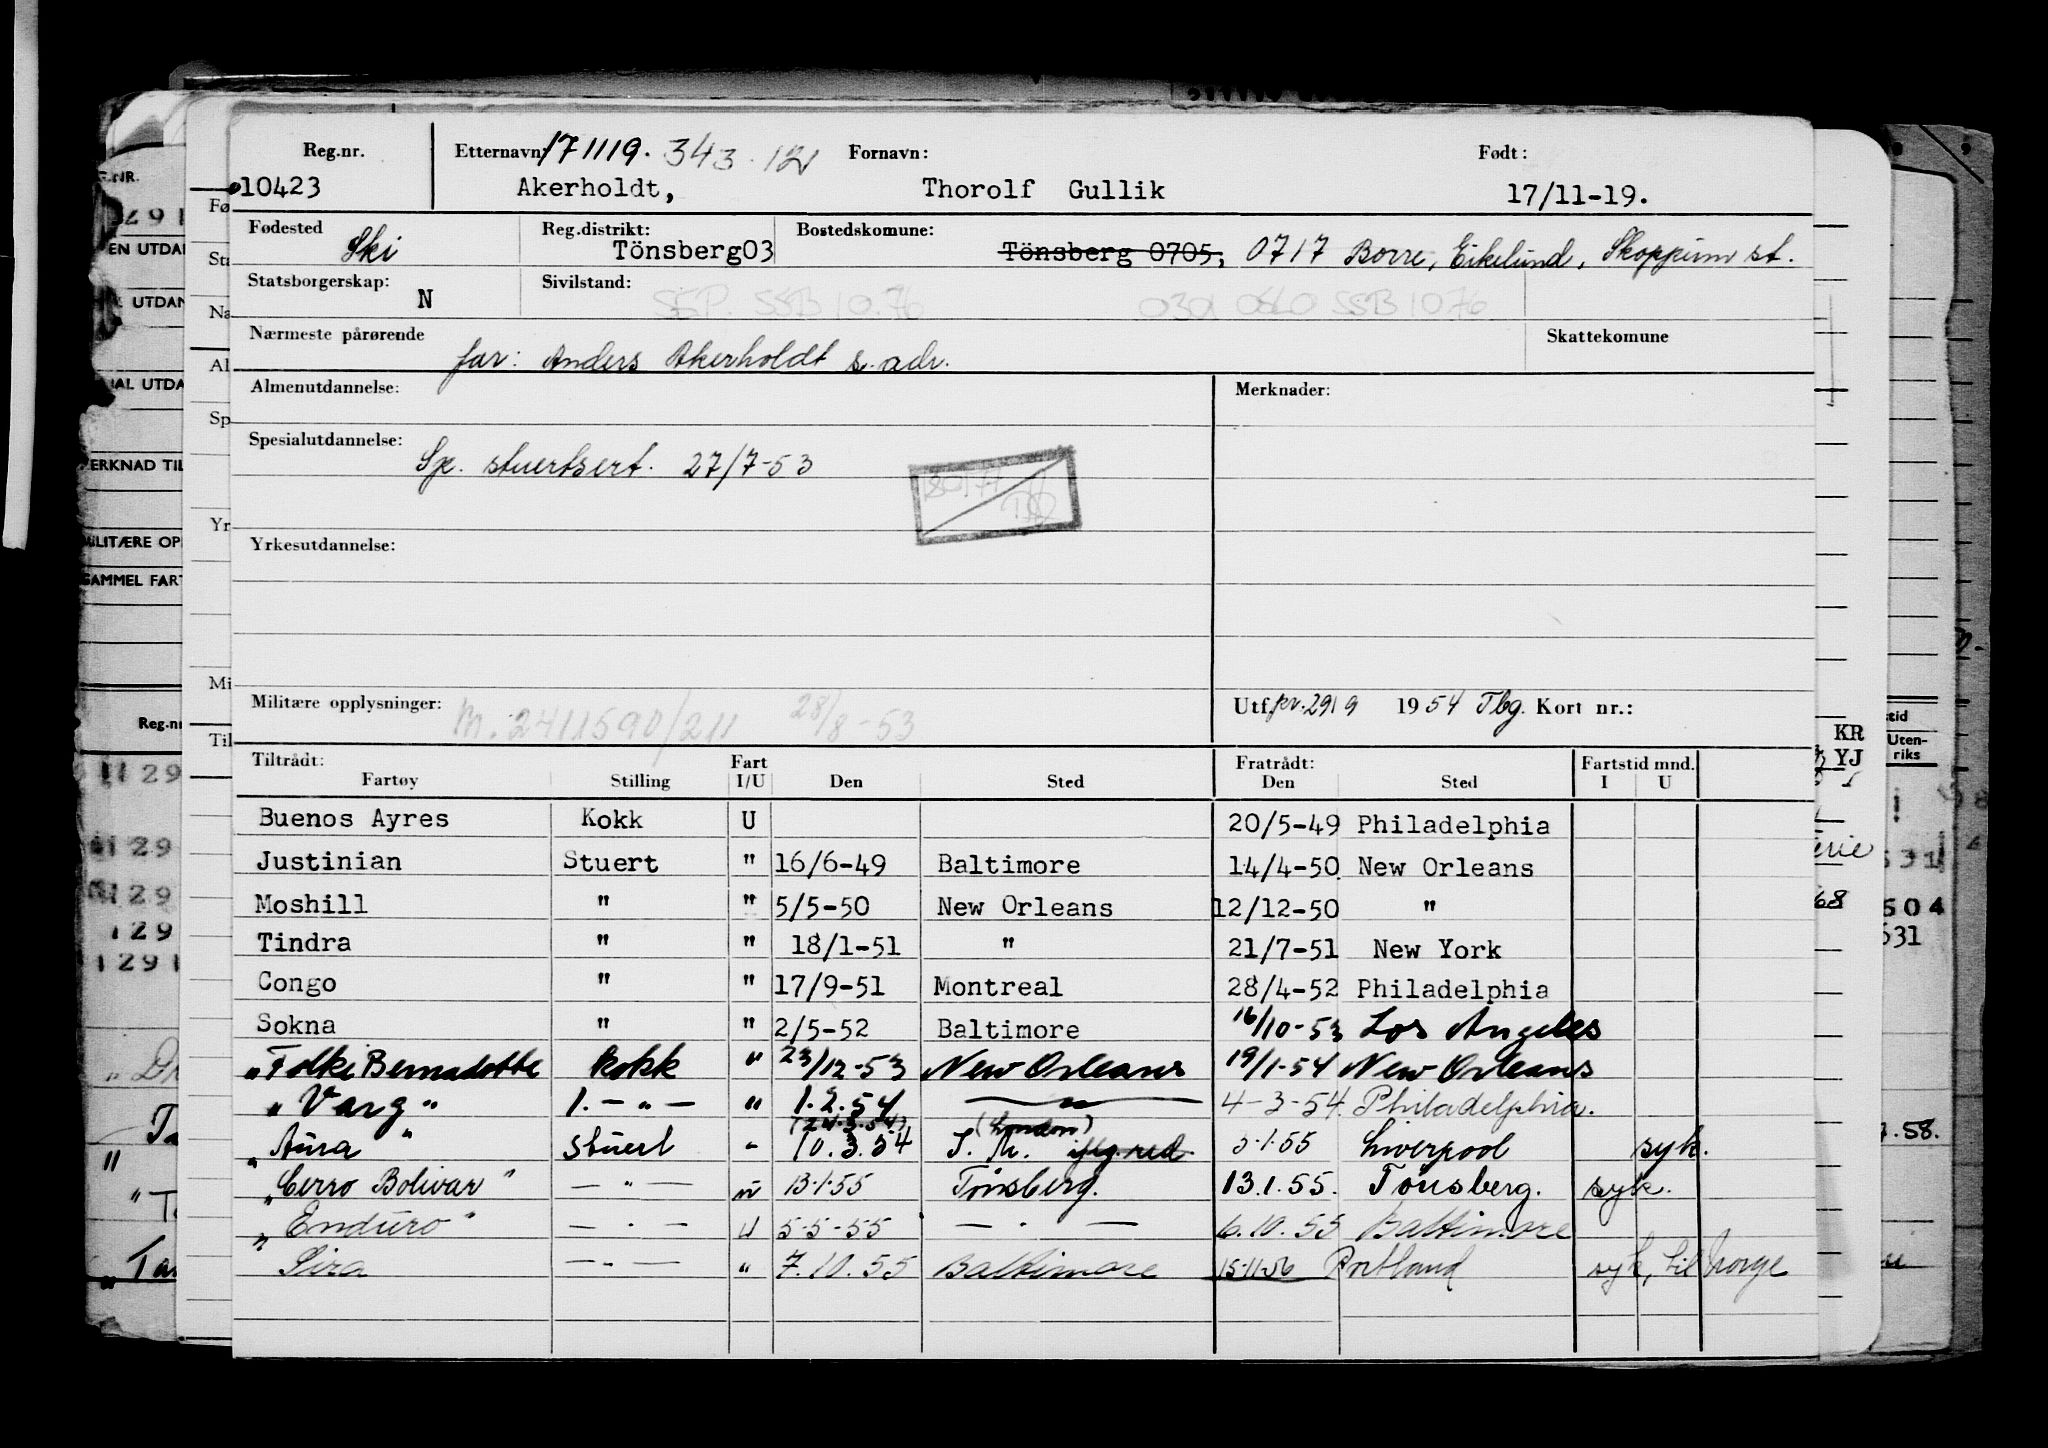 Reg.nr. Etternavn: 171119. 343 12 Fornavn: Født:
10423 Akerholdt, Thorolf Gullik 17/11-19.
Fødested Ski Reg.distrikt: Tönsberg03 Bostedskomune: Tönsberg 0705, 0717 Borre, Eikelund, Skoppum st.
Statsborgerskap: N Sivilstand: SEP. SSB 10.76 0301 OSLO SSB 1076
Nærmeste pårørende far: Anders Akerholdt s. adr. Skattekomune
Almenutdannelse: Merknader:
Spesialutdannelse: Sp. stuertsert. 27/7-53
Yrkesutdannelse:
Militære opplysninger: M. 2411590/211 28/8-53 Utf. pr. 29/9 1954 Tbg. Kort nr.:
Tiltrådt: Fart Fratrådt: Fartstid mnd.
Fartøy Stilling I/U Den Sted Den Sted I U
Buenos Ayres Kokk U 20/5-49 Philadelphia
Justinian Stuert " 16/6-49 Baltimore 14/4-50 New Orleans
Moshill " " 5/5-50 New Orleans 12/12-50 "
Tindra " " 18/1-51 " 21/7-51 New York
Congo " " 17/9-51 Montreal 28/4-52 Philadelphia
Sokna " " 2/5-52 Baltimore 16/10-53 Los Angeles
"Folke Bernadotte kokk " 23/12-53 New Orleans 19/1-54 New Orleans
"Varg" 1. — " — " 1.2.54 — " — 4-3-54. Philadelphia.
(24.3.54) (London)
"Aura" Stuert " 10.3.54 3.1.55 Liverpool syk.
"Cerro Bolivar" — " — " 13.1.55 Tönsberg. 13.1.55. Tönsberg. syk.
"Enduro" — " — U 5-5-55 — " — 6.10.55 Baltimore
Sira — " — " 7.10.55 Baltimore 15-11-56 Portland syk, til Norge